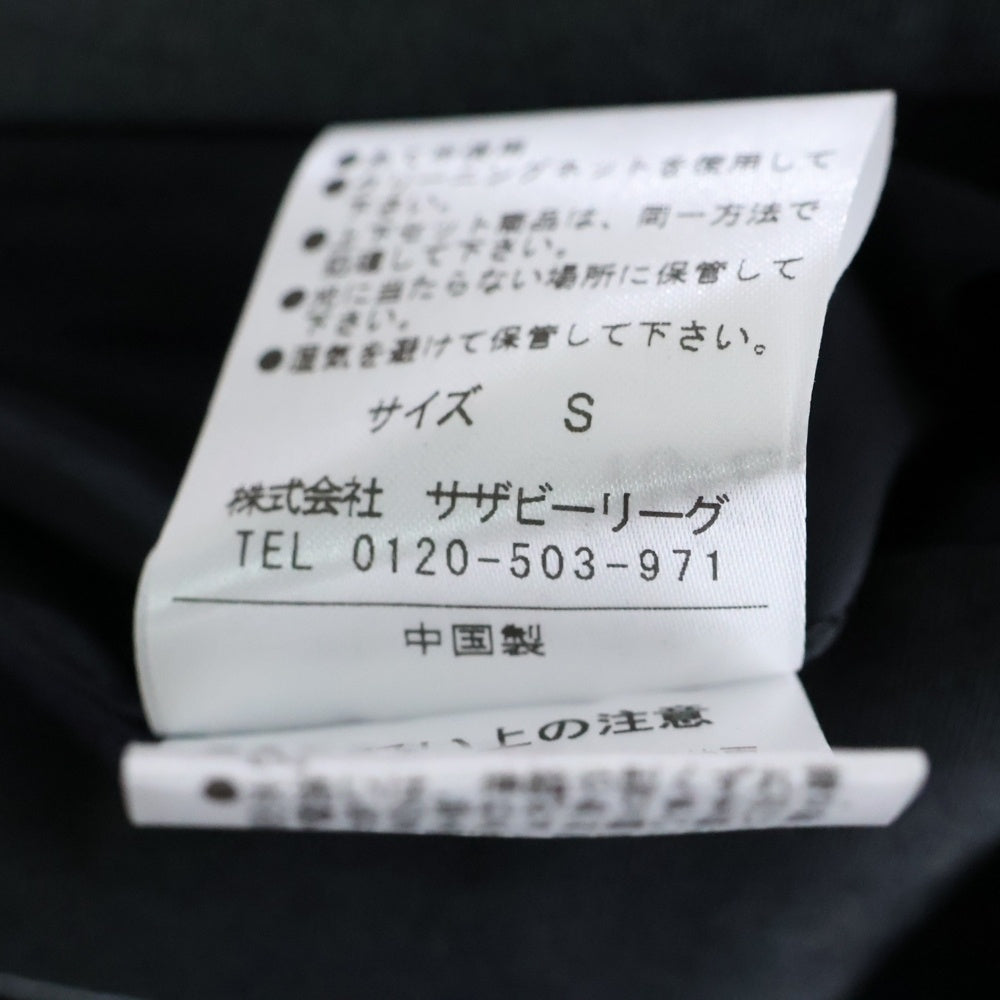 ●クリーニングネットを使用して
下さい。
●上下セット商品は、同一方法で
処理して下さい。
●光に当たらない場所に保管して
下さい。
●湿気を避けて保管して下さい。
サイズ S
株式会社 サザビーリーグ
TEL 0120-503-971
中国製
上の注意